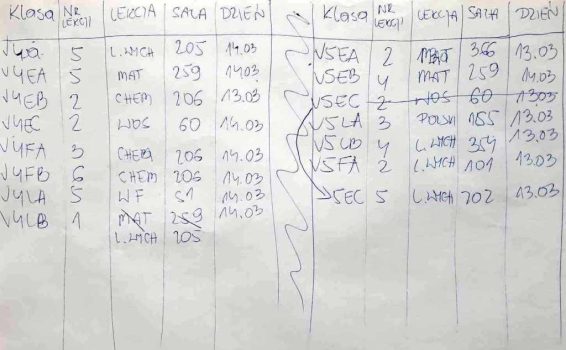 Klasa NR LEKCJI LEKCJA SALA DZIEŃ
V4EA 5 MAT 259 14.03
V4EB 2 CHEM 206 13.03
V4EC 2 WOS 60 14.03
V4FA 3 CHEM 206 14.03
V4FB 6 CHEM 206 14.03
V4LA 5 WF S1 14.03
V4LB 1 MAT 259 14.03
L.WYCH 205
Klasa NR LEKCJI LEKCJA SALA DZIEŃ
V5EA 2 MAT 356 13.03
V5EB 4 MAT 259 14.03
V5EC 2 WOS 60 13.03
V5LA 3 POLSKI 155 13.03
V5LB 4 L.WYCH 354 13.03
V5FA 2 L.WYCH 101 13.03
5EC 5 L.WYCH 202 13.03